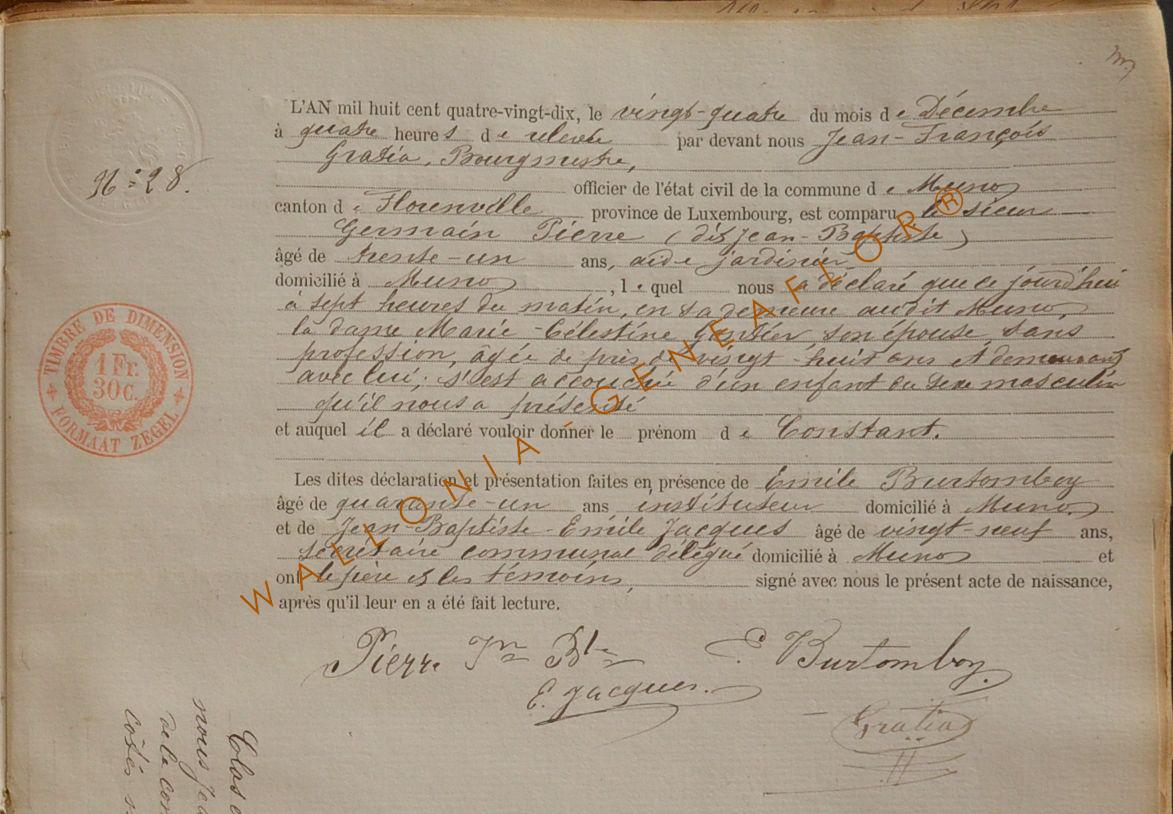 N° 28.
L'AN mil huit cent quatre-vingt-dix, le vingt-quatre du mois de Décembre
à quatre heures de relevée par devant nous Jean-François
Gratia, Bourgmestre,
officier de l'état civil de la commune de Muno
canton de Florenville province de Luxembourg, est comparu le sieur
Germain Pierre (dit Jean-Baptiste)
âgé de trente-un ans, aide jardinier
domicilié à Muno, lequel nous a déclaré que ce jourd'hui
à sept heures du matin, en sa demeure audit Muno,
la dame Marie-Célestine son épouse, sans
profession, âgée de près de vingt-huit ans et demeurant
avec lui, s'est accouchée d'un enfant du sexe masculin
qu'il nous a présenté
et auquel il a déclaré vouloir donner le prénom de Constant.
Les dites déclaration et présentation faites en présence de Emile Burtomboy
âgé de quarante-un ans, instituteur domicilié à Muno,
et de Jean-Baptiste-Emile Jacques âgé de vingt-neuf ans,
secrétaire communal délégué domicilié à Muno et
ont le père et les témoins, signé avec nous le présent acte de naissance,
après qu'il leur en a été fait lecture.
Pierre Jn Bte E. Burtomboy
E. Jacques.
Gratia
TIMBRE DE DIMENSION
1 Fr.
30c.
FORMAAT ZEGEL
WALLONIA - GENEAFLOR ®
Clos
nous
de la
cotés